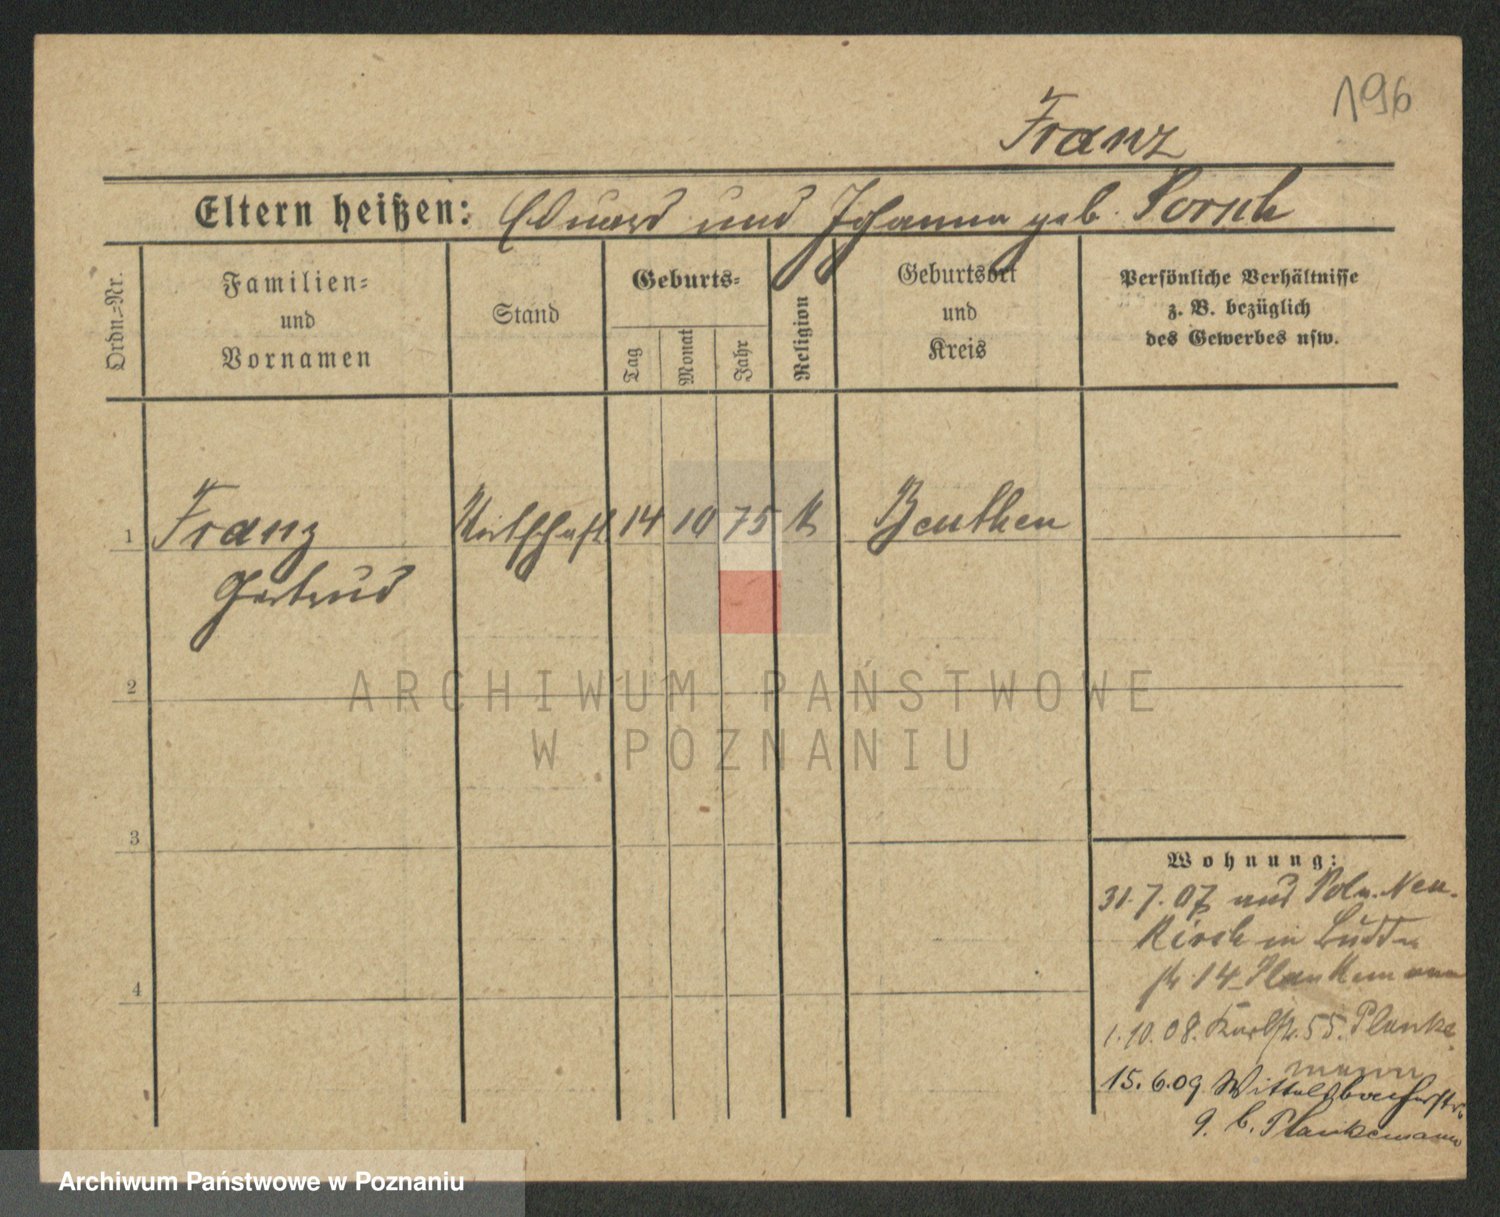 196
Franz
Eltern heißen: Eduard und Johanna geb.
Ordn.-Nr.
Familien-
und
Vornamen
Stand
Geburts-
Tag
Monat
Jahr
Religion
Geburtsort
und
Kreis
Persönliche Verhältnisse
z. B. bezüglich
des Gewerbes usw.
1 Franz 14 10 75 K Beuthen
Gertrud
2
3
4
ARCHIWUM PAŃSTWOWE
W POZNANIU
Wohnung:
31.7.07 aus Poln. Neu-
kirch in
str 14 Plankemann
1.10.08. Karlstr. 55. Planke
mann
15.6.09 Wittelsbacherstr.
9. b. Plankemann
Archiwum Państwowe w Poznaniu